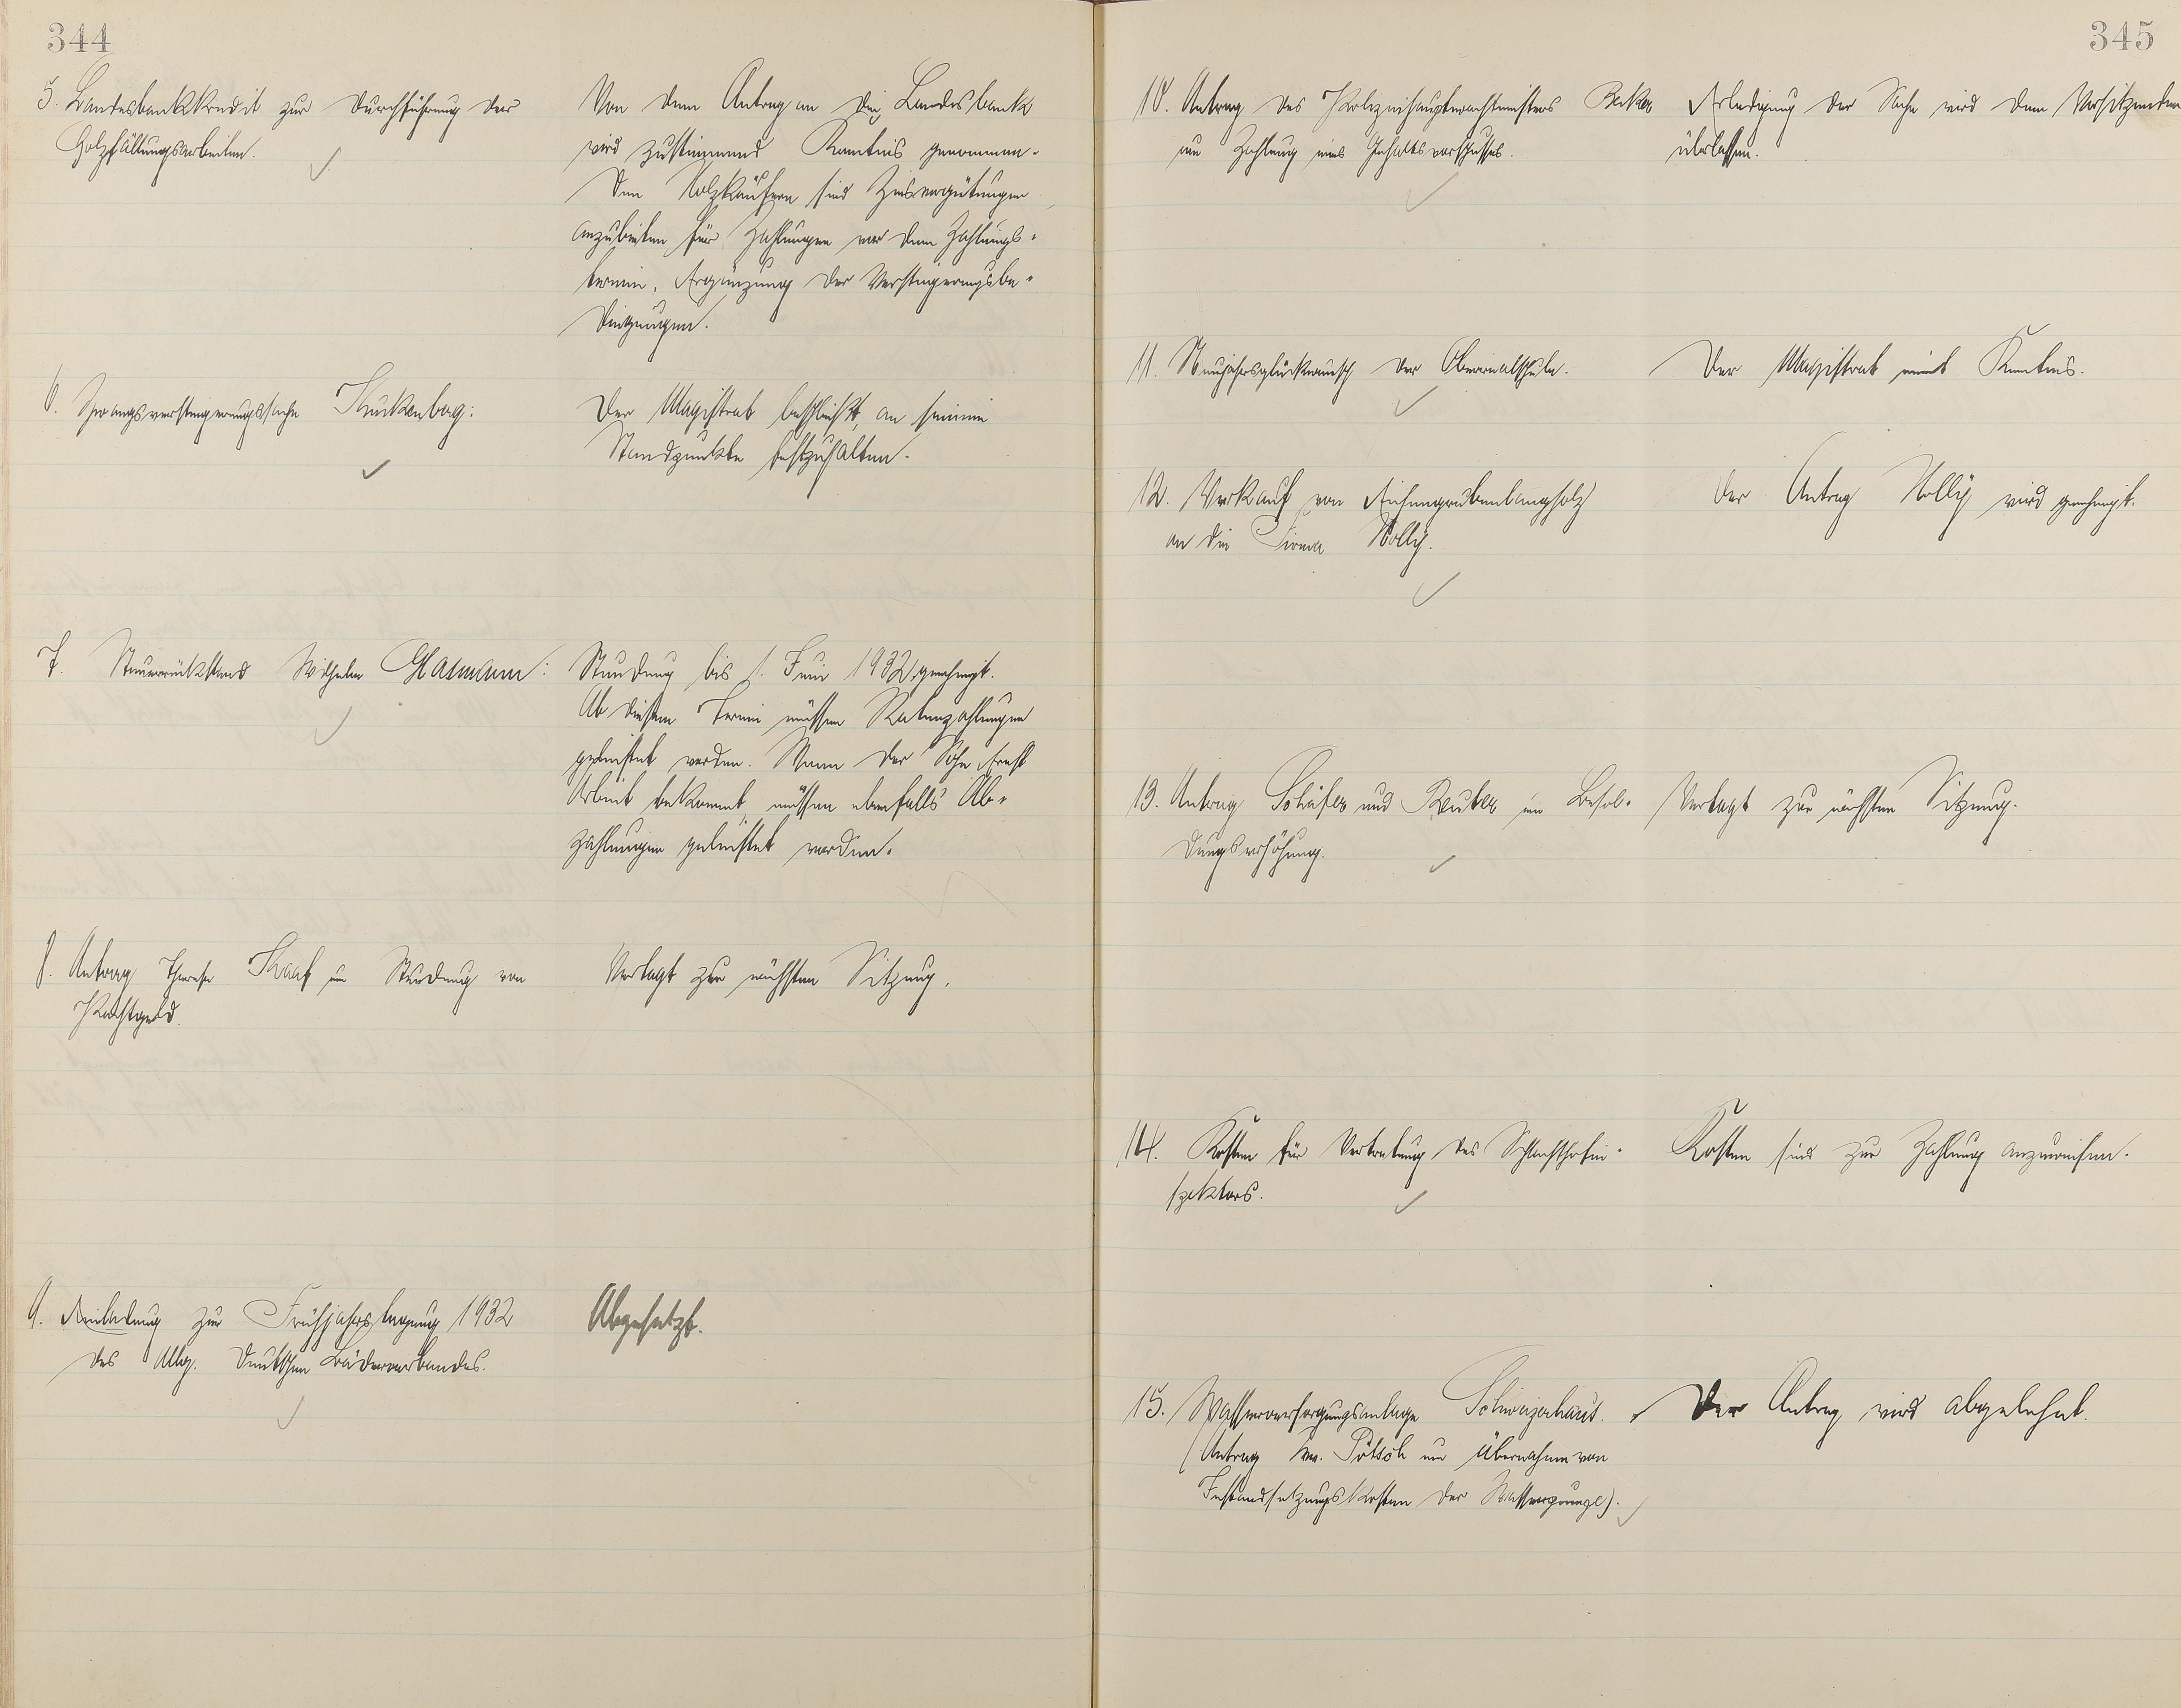 344
5. Landesbankkredit zur Durchführung der
Holzfällungsarbeiten.
Von dem Antrag an die Landesbank
wird zustimmend Kenntnis genommen.
Den Holzkäufern sind Zinsvergütungen
anzubieten für Zahlungen vor dem Zahlungs-
termin. Ergänzung der Versteigerungsbe-
dingungen.
6. Zwangsversteigerungssache
Der Magistrat beschließt, an seinem
Standpunkte festzuhalten.
7. Steuerrückstand Wilhelm Glasmann:
Stundung bis 1. Juni 1932 genehmigt.
Ab diesem Termin müssen Ratenzahlungen
geleistet werden. Wenn der Sohn Ernst
Arbeit bekommt, müssen ebenfalls Ab-
zahlungen geleistet werden.
8. Antrag Therese um Stundung von
Pachtgeld.
Vertagt zur nächsten Sitzung.
9. Einladung zur Frühjahrstagung 1932
des Allg. Deutschen Bäderverbandes.
Abgesetzt.
345
10. Antrag des Polizeihauptwachtmeisters Becker
um Zahlung eines Gehaltsvorschusses.
Erledigung der Sache wird dem Vorsitzenden
überlassen.
11. Neujahrsglückwunsch der Oberrealschule.
Der Magistrat nimmt Kenntnis.
12. Verkauf von Eichengrubenlangholz
an die Firma Nolly.
Der Antrag Nolly wird genehmigt.
13. Antrag Schäfer und Reuter um Besol-
dungserhöhung.
Vertagt zur nächsten Sitzung.
14. Kosten für Vertretung des Schlachthofin-
spektors.
Kosten sind zur Zahlung anzuweisen.
15. Wasserversorgungsanlage Schweizerhaus.
(Antrag Ww. Pötsch um Übernahme von
Instandsetzungskosten der Wasserpumpe).
Der Antrag wird abgelehnt.